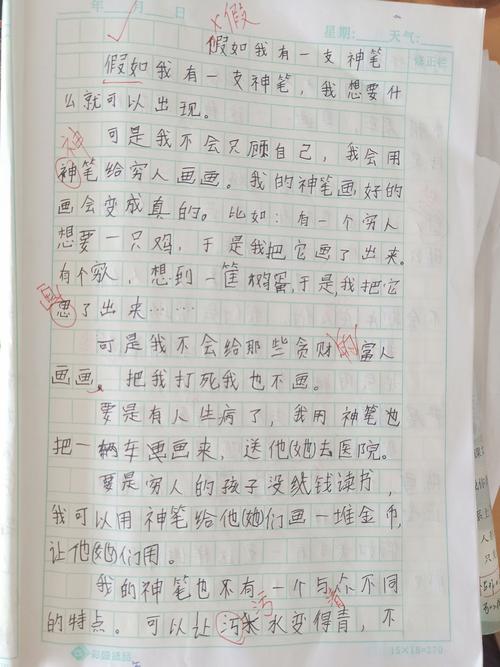 年 月 日 星期： 天气：
×假
假如我有一支神笔
修正栏
假如我有一支神笔，我想要什
么就可以出现。
神
可是我不会只顾自己，我会用
神笔给穷人画画。我的神笔画好的
画会变成真的。比如：有一个穷人
想要一只鸡，于是我把它画了出来。
有个穷人，想到一筐鸡蛋，于是，我把它
画
思了出来……
可是我不会给那些贪财的富人
画画，把我打死我也不画。
要是有人生病了，我用神笔也
把一辆车画画来，送他(她)去医院。
要是穷人的孩子没钱读书，
我可以用神笔给他(她)们画一堆金币，
让他(她)们用。
我的神笔也不有一个与众不同
污 清
的特点。可以让污水水变得青，不
15×18=270